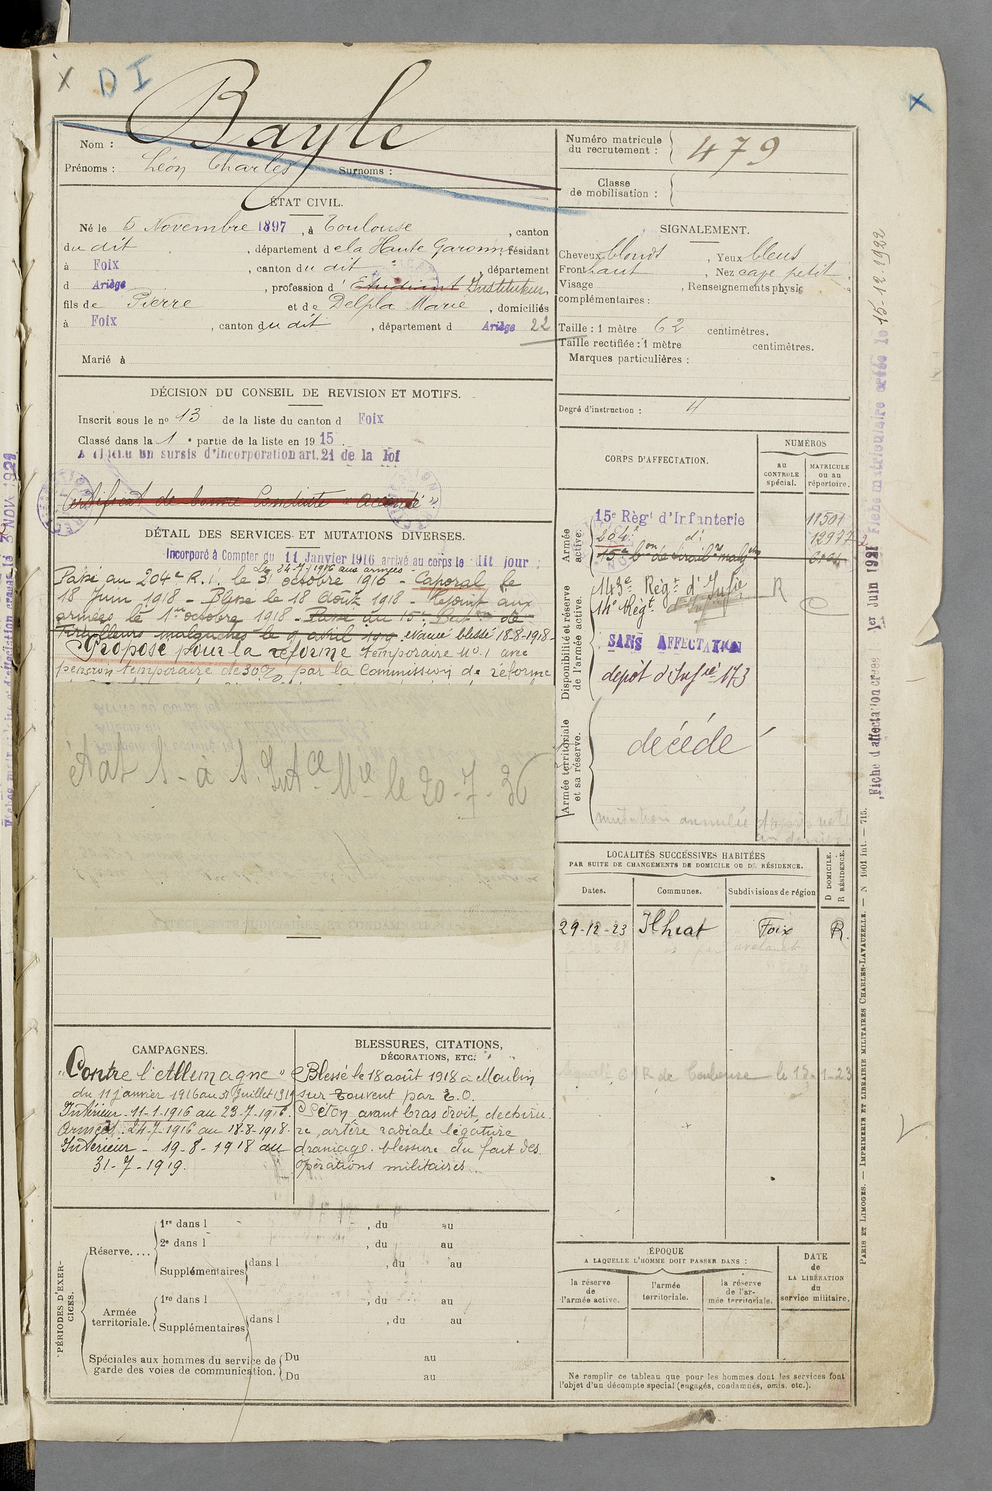 D I
Bayle
Nom :
Prénoms : Léon Charles Surnoms :
Numéro matricule
du recrutement : 479
Classe
de mobilisation :
ÉTAT CIVIL.
Né le 5 Novembre 1897, à Toulouse, canton
du dit, département de la Haute Garonne, résidant
à Foix, canton du dit, département
d Ariège, profession d' Etudiant Instituteur,
fils de Pierre et de Delpla Marie, domiciliés
à Foix, canton du dit, département d Ariège 22
Marié à
SIGNALEMENT.
Cheveux blonds, Yeux bleus
Front haut, Nez cave petit
Visage, Renseignements physio
complémentaires :
Taille : 1 mètre 62 centimètres.
Taille rectifiée : 1 mètre centimètres.
Marques particulières :
Degré d'instruction : 4
DÉCISION DU CONSEIL DE REVISION ET MOTIFS.
Inscrit sous le nº 13 de la liste du canton d Foix
Classé dans la 1e partie de la liste en 1915.
A obtenu un sursis d'incorporation art. 21 de la loi
Certificat de bonne Conduite "Accordé"
DÉTAIL DES SERVICES ET MUTATIONS DIVERSES.
Incorporé à Compter du 11 Janvier 1916 arrivé au corps le dit jour :
Le 24-7-1916 aux armées
Passé au 204e R.I. le 31 octobre 1916 - Caporal le
18 Juin 1918 - Blessé le 18 Août 1918 - Rejoint aux
armées le 1er octobre 1918 - Passé du 15e Baton de
Tirailleurs malgaches le 9 avril 1919. Evacué blessé 18.8.1918.
Proposé pour la réforme temporaire nº 1 avec
pension temporaire de 30% par la Commission de réforme
Etat S. à S. Intce Mre le 20-7-36
CORPS D'AFFECTATION.
NUMÉROS
AU CONTRÔLE spécial.
MATRICULE ou au répertoire.
Armée active.
15e Régt d'Infanterie 11501
204e dº 12977
15e Bon de tirailrs malgches
Disponibilité et réserve de l'armée active.
143e Régt d'Infie R
14e Régt
SANS AFFECTATION
dépot d'Infie 173
Armée territoriale et sa réserve.
décédé
mutation annulée
LOCALITÉS SUCCESSIVES HABITÉES
PAR SUITE DE CHANGEMENTS DE DOMICILE OU DE RÉSIDENCE.
Dates. Communes. Subdivisions de région
D DOMICILE.
R RÉSIDENCE.
29-12-23 Ilhat Foix R.
CAMPAGNES.
"Contre l'Allemagne"
du 11 janvier 1916 au 31 Juillet 1919
Intérieur - 11-1-1916 au 23-7-1916.
Armées : 24-7-1916 au 18-8-1918.
Intérieur - 19-8-1918 au
31-7-1919.
BLESSURES, CITATIONS,
DÉCORATIONS, ETC.
Blessé le 18 août 1918 à Moulin
sur Touvent par E.O.
Séton avant bras droit, déchiru
re, artère radiale ligature
drainage. blessure du fait des
opérations militaires.
PÉRIODES D'EXERCICES.
Réserve....
1re dans l , du au
2e dans l , du au
Supplémentaires dans l , du au
Armée
territoriale.
1re dans l , du au
Supplémentaires dans l , du au
Spéciales aux hommes du service de
garde des voies de communication.
Du au
Du au
ÉPOQUE
A LAQUELLE L'HOMME DOIT PASSER DANS :
la réserve
de
l'armée active.
l'armée
territoriale.
la réserve
de l'ar-
mée territoriale.
DATE
de
LA LIBÉRATION
du
service militaire.
Ne remplir ce tableau que pour les hommes dont les services font
l'objet d'un décompte spécial (engagés, condamnés, omis, etc.).
Fiche matriculaire créée le 15-12-1922
Fiche d'affectation créée 1er Juin 1921
PARIS ET LIMOGES. — IMPRIMERIE ET LIBRAIRIE MILITAIRES CHARLES-LAVAUZELLE. — N 1001 int. — 715.